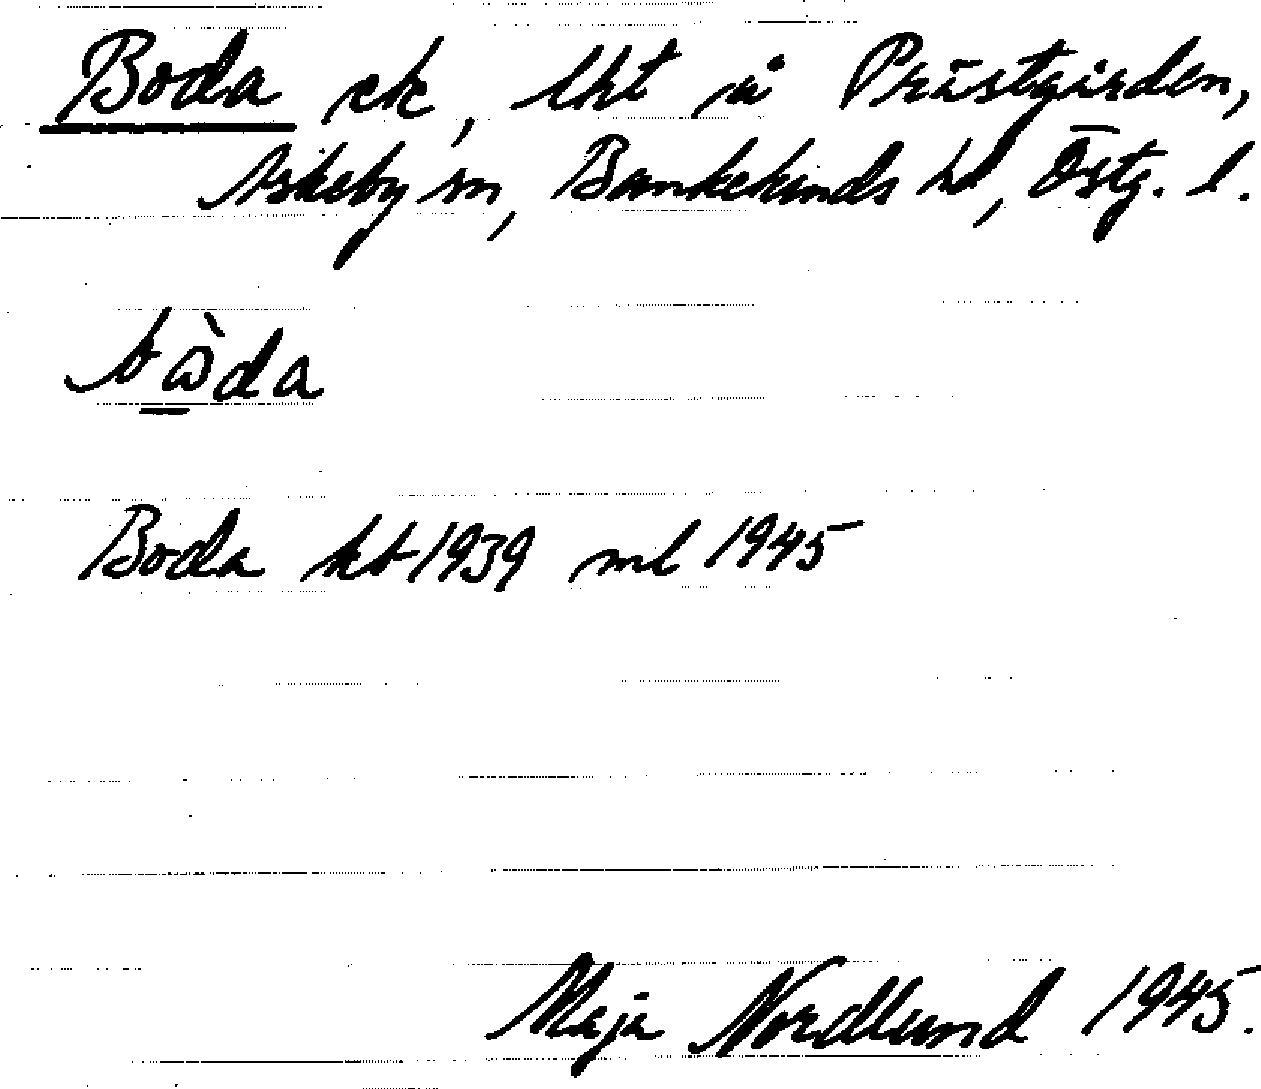 Boda rk, lht å Prästgården,
Askeby sn, Bankekinds hd, Östg. l.
bɷ̀da
Boda kb 1939 ml 1945
Maja Nordlund 1945.